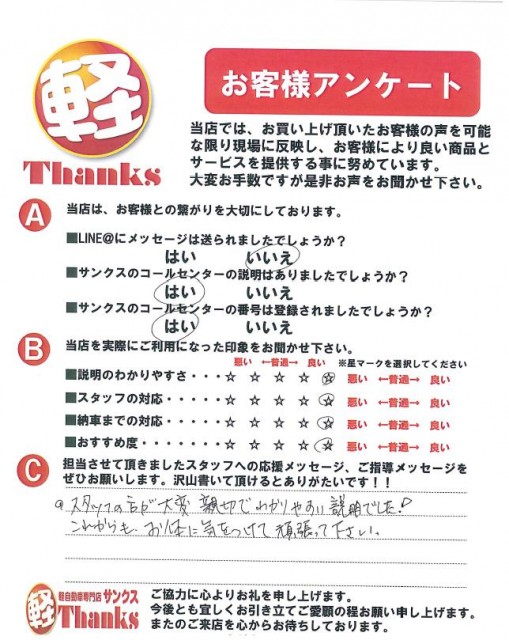 軽
Thanks
お客様アンケート
当店では、お買い上げ頂いたお客様の声を可能
な限り現場に反映し、お客様により良い商品と
サービスを提供する事に努めています。
大変お手数ですが是非お声をお聞かせ下さい。
A 当店は、お客様との繋がりを大切にしております。
■LINE@にメッセージは送られましたでしょうか？
はい いいえ
■サンクスのコールセンターの説明はありましたでしょうか？
はい いいえ
■サンクスのコールセンターの番号は登録されましたでしょうか？
はい いいえ
B 当店を実際にご利用になった印象をお聞かせ下さい。
悪い ←普通→ 良い ※星マークを選択してください
■説明のわかりやすさ・・・☆ ☆ ☆ ☆ ☆ 悪い ←普通→ 良い
■スタッフの対応・・・・・☆ ☆ ☆ ☆ ☆ 悪い ←普通→ 良い
■納車までの対応・・・・・☆ ☆ ☆ ☆ ☆ 悪い ←普通→ 良い
■おすすめ度・・・・・・・☆ ☆ ☆ ☆ ☆ 悪い ←普通→ 良い
C 担当させて頂きましたスタッフへの応援メッセージ、ご指導メッセージを
ぜひお願いします。沢山書いて頂けるとありがたいです！！
スタッフの方が大変親切でわかりやすい説明でした!
これからも、お体に気をつけて頑張って下さい。
軽 軽自動車専門店 サンクス
Thanks
ご協力に心よりお礼を申し上げます。
今後とも宜しくお引き立てご愛顧の程お願い申し上げます。
またのご来店を心からお待ちしております。